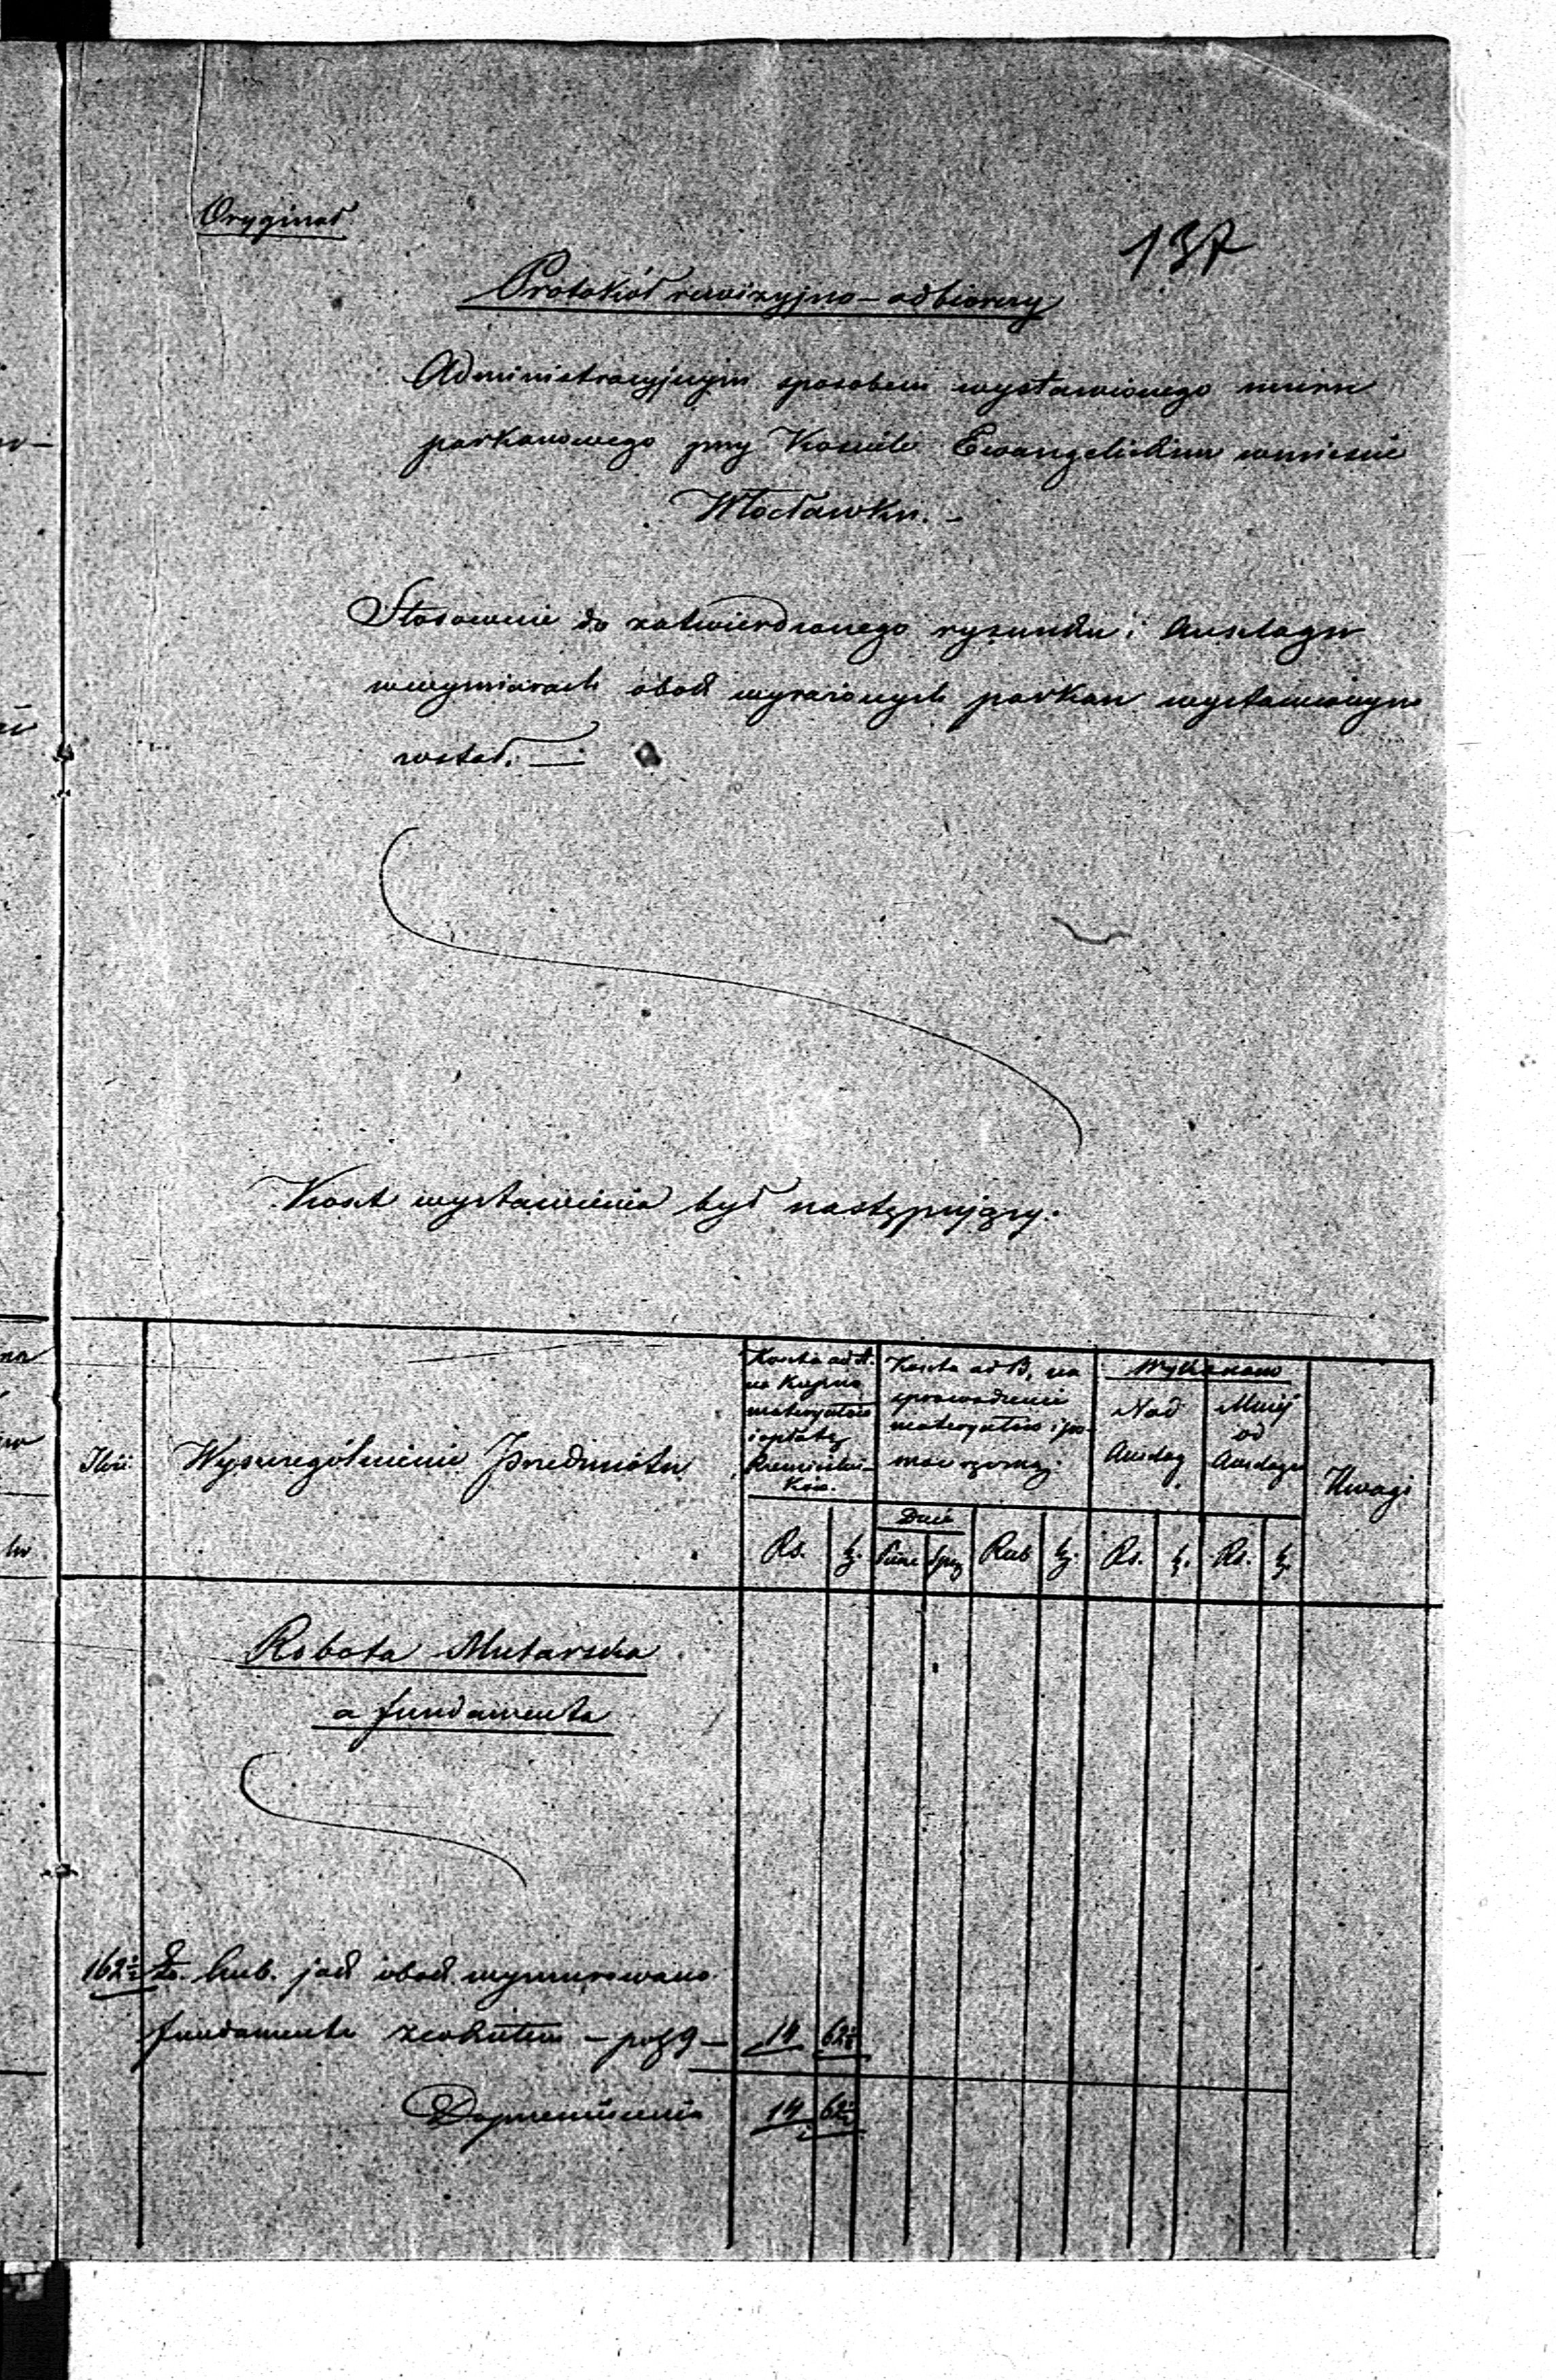 Oryginał
137
Protokół rewizyjno-odbiorczy
Administracyjnym sposobem wystawionego muru
parkanowego przy Kościele Ewangelickim w mieście
Włocławku. -
Stosownie do zatwierdzonego rysunku i Anszlagu
w wymiarach obok wyrażonych parkan wystawionym
został. —
Koszt wystawienia był następujący:
Ilość
Wyszczególnienie Przedmiotu
Koszta ad A.
na Kupno
materyałów
i opłatę
Rzemieślni-
ków.
Koszta ad B, na
sprowadzenie
materyałów i po-
moc ręczną
Wykonano
Nad
Anszlag
Mniej
od
Anszlagu
Uwagi
Rs. k. Dnie Piesze Sprz Rub k. Rs. k. Rs. k.
Robota Mularska
a fundamenta
162 ½ Ło. kub. jak obok wymurowano
fundamentu - po 9 - 14 62½
Do przeniesienia 14 62½